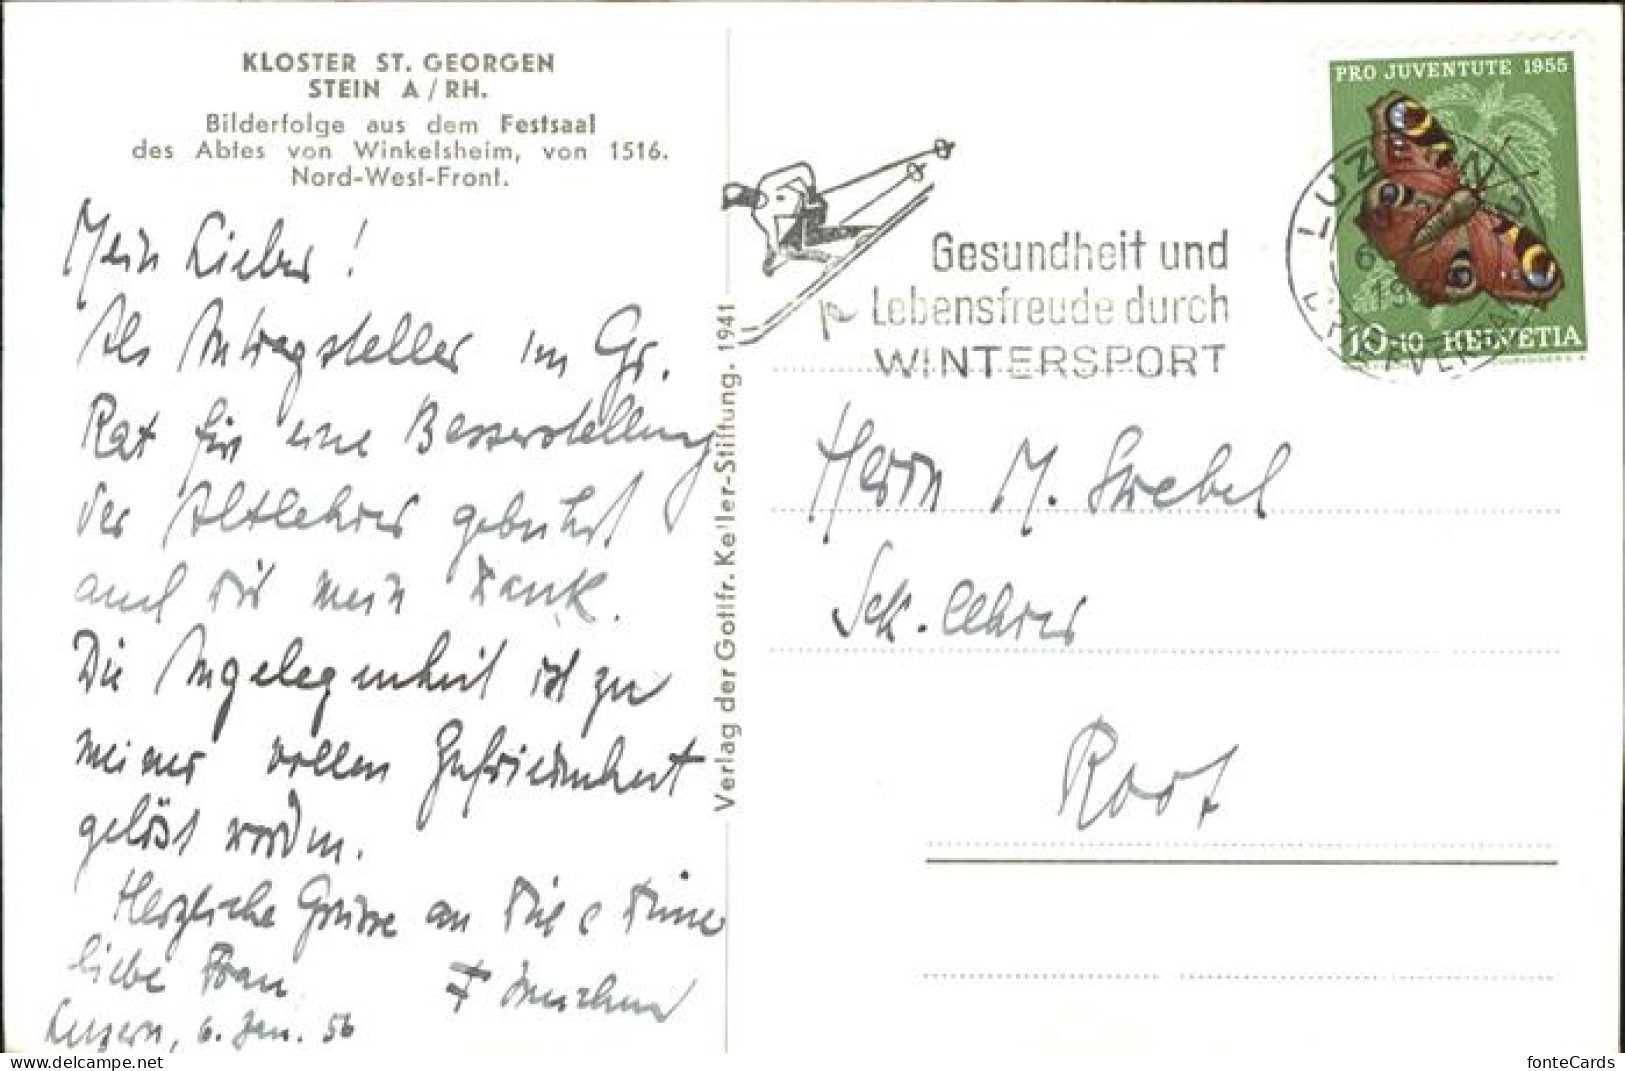 KLOSTER ST. GEORGEN
STEIN A/RH.
Bilderfolge aus dem Festsaal
des Abtes von Winkelsheim, von 1516.
Nord-West-Front.
Mein Lieber!
Als Antragsteller im Gr.
Rat für eine Besserstellung
der Altlehrer gebührt
auch Dir mein Dank.
Die Angelegenheit ist zu
meiner vollen Zufriedenheit
gelöst worden.
Herzliche Grüsse an Dich & Deine
liebe Frau
Luzern, 6. Jan. 56
Verlag der Gottfr. Keller-Stiftung. 1941
Gesundheit und
Lebensfreude durch
WINTERSPORT
PRO JUVENTUTE 1955
10+10 HELVETIA
LUZERN 2
BRIEFVERSAND
Herrn M. Strebel
Sek. lehrer
Root
fonteCards